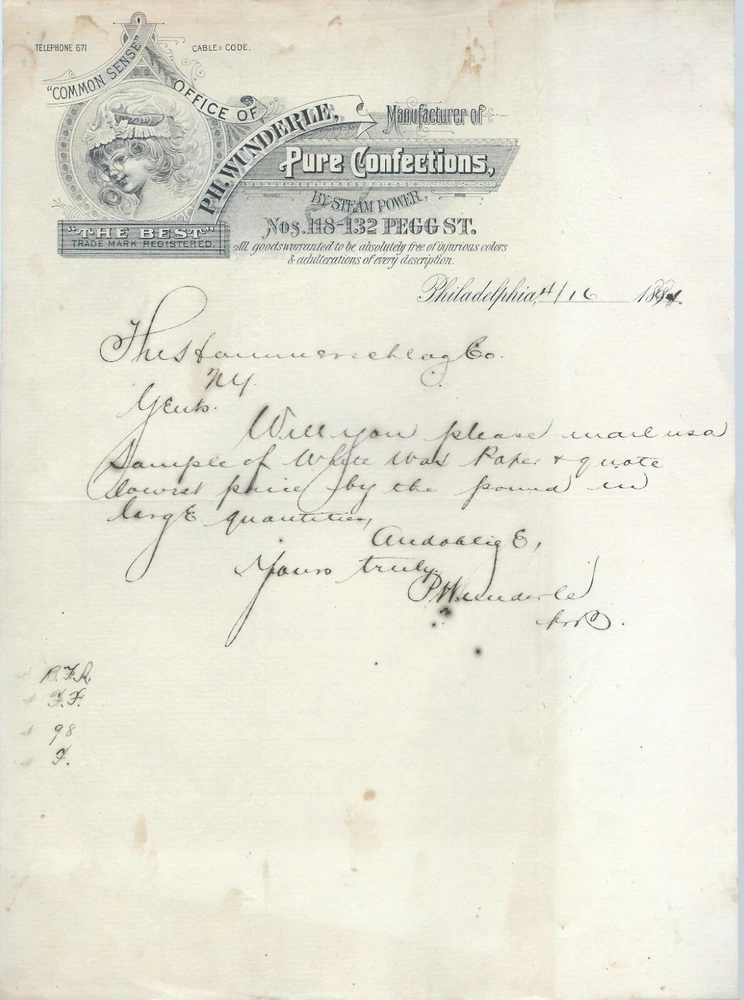 TELEPHONE 671
CABLE: CODE.
"COMMON SENSE"
OFFICE OF
PH. WUNDERLE,
Manufacturer of
Pure Confections,
BY STEAM POWER,
Nos. 118-132 PEGG ST.
"THE BEST"
TRADE MARK REGISTERED.
All goods warranted to be absolutely free of injurious colors
& adulterations of every description.
Philadelphia, 4/16 1891.
The Hammerschlag Co.
NY.
Gents.
Will you please mail us a
sample of White Wax Paper & quote
lowest price by the pound in
large quantities,
And oblige,
Yours truly
P Wunderle
B.F.R.
F.F.
98
F.